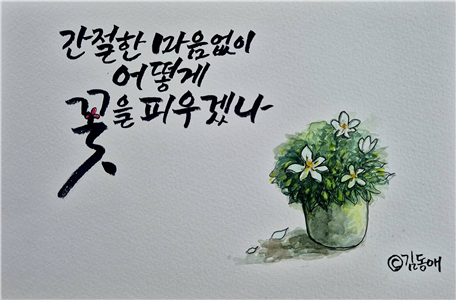 간절한 마음없이
어떻게
꽃을 피우겠나
©김동애